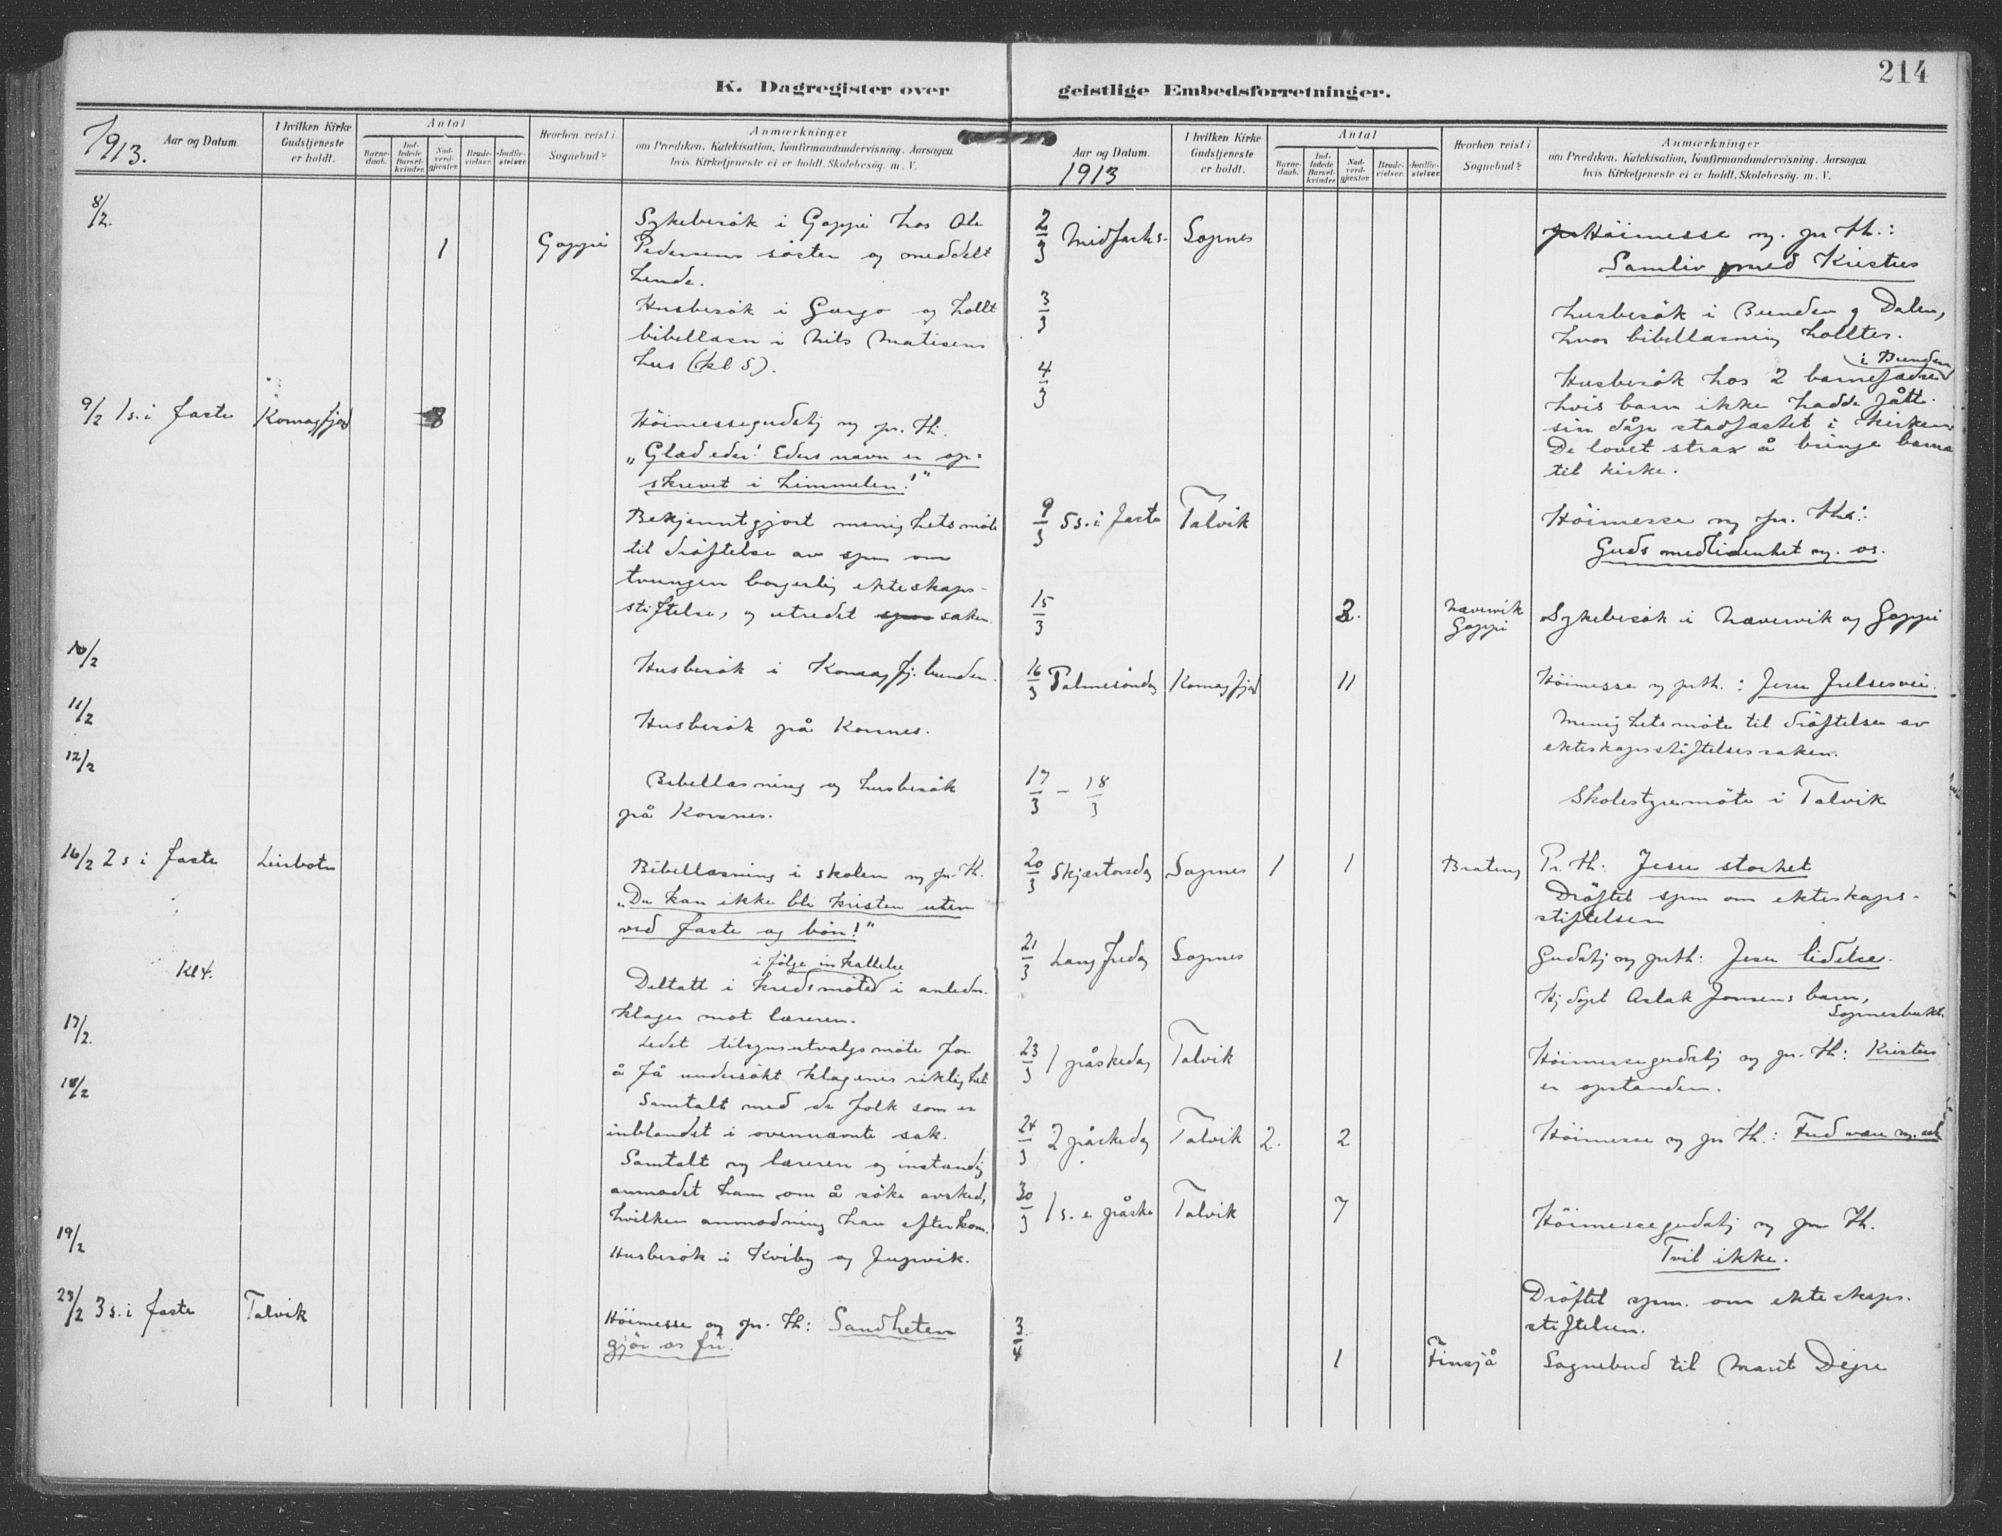 214
K. Dagregister over geistlige Embedsforretninger.
1913.
Aar og Datum.
I hvilken Kirke
Gudstjeneste
er holdt.
Antal
Barne-
daab.
Ind-
ledede
Barsel-
kvinder.
Nad-
verd-
gjester.
Brude-
vielser.
Jordfæ-
stelser.
Hvorhen reist i
Sognebud?
Anmærkninger
om Prædiken, Katekisation, Konfirmandundervisning, Aarsagen
hvis Kirketjeneste ei er holdt, Skolebesøg, m. V.
8/2. 1 Goppi Sykebesök i Goppi hos Ole
Pedersens söster og meddelt
hende.
Husbesök i Gargo og hollt
bibellæsn i Nils Matisens
hus (kl 5).
9/2 1 s. i faste Komagfjord 8 Höimessegudstj og pr. Th.
"Glæd eder! Eders navn er op-
skrevet i himmelen!"
Bekjenntgjort menighetsmöte
til dröftelse av spm om
tvungen borgerlig ekteskaps-
stiftelse, og utredet saken.
10/2 Husbesök i Komagfj. bunden.
11/2 Husbesök på Korsnes.
12/2 Bibellæsning og husbesök
på Korsnes.
16/2 2 s i faste Leirbotn Bibellæsning i skolen og pr. Th.
"Du kan ikke bli kristen uten
ved faste og bön!"
i fölge innkallelse
Kl 4. Deltatt i kredsmöted i anledn.
klager mot læreren.
17/2. Ledet tilsynsutvalgsmöte for
å få undersökt klagenes riktighet
18/2 Samtalt med de folk som er
inblandet i ovennævnte sak.
Samtalt og læreren og instændig
anmodet ham om å söke avsked,
hvilken anmodning han efterkom.
19/2 Husbesök i Kviby og Jupvik.
23/2 3 s. i faste Talvik Höimesse og pr. Th: Sandheten
gjör os fri.
Aar og Datum.
1913
I hvilken Kirke
Gudstjeneste
er holdt.
Antal
Barne-
daab.
Ind-
ledede
Barsel-
kvinder.
Nad-
verd-
gjester.
Brude-
vielser.
Jordfæ-
stelser.
Hvorhen reist i
Sognebud?
Anmærkninger
om Prædiken, Katekisation, Konfirmandundervisning, Aarsagen
hvis Kirketjeneste ei er holdt, Skolebesøg, m. V.
2/3 Midfaste s. Sopnes Höimesse og pr Th.:
Samliv med Kristus
3/3 Husbesök i Bunden og Dalen,
hvor bibellæsning holltes.
i Bunden
4/3 Husbesök hos 2 barnefædre
hvis barn ikke hadde fått
sin dåp stadfæstet i kirken.
De lovet strax å bringe barna
til kirke.
9/3 5 s. i faste Talvik Höimesse og pr. Th:
Guds medlidenhet og. os.
15/3 2. Nævervik
Goppi Sykebesök i Nævervik og Goppi
16/3 Palmesöndag Komagfjord 11 Höimesse og pr Th.: Jesu frelsesvei.
Menighetsmöte til dröftelse av
ekteskapsstiftelsessaken.
17/3 - 18/3 Skolestyremöte i Talvik
20/3 Skjærtorsdag Sopnes 1 1 Brateng Pr. Th: Jesu storhet
Dröftet spm om ekteskaps-
stiftelsen
21/3 Langfredag Sopnes Gudstj og pr Th: Jesu lidelse.
Hj döpt Aslak Jonsens barn,
Sopnesbukt.
23/3 1 påskedag Talvik Höimessegudstj og pr. Th: Kristus
er opstanden.
24/3 2 påskedag Talvik 2. 2 Höimesse og pr Th.: Fred være
30/3 1 s. e påske Talvik 7 Höimessegudstj og pr Th.
Tvil ikke.
Dröftet spm. om ekteskaps-
stiftelsen.
3/4 1 Finsjå Sognebud til Marit